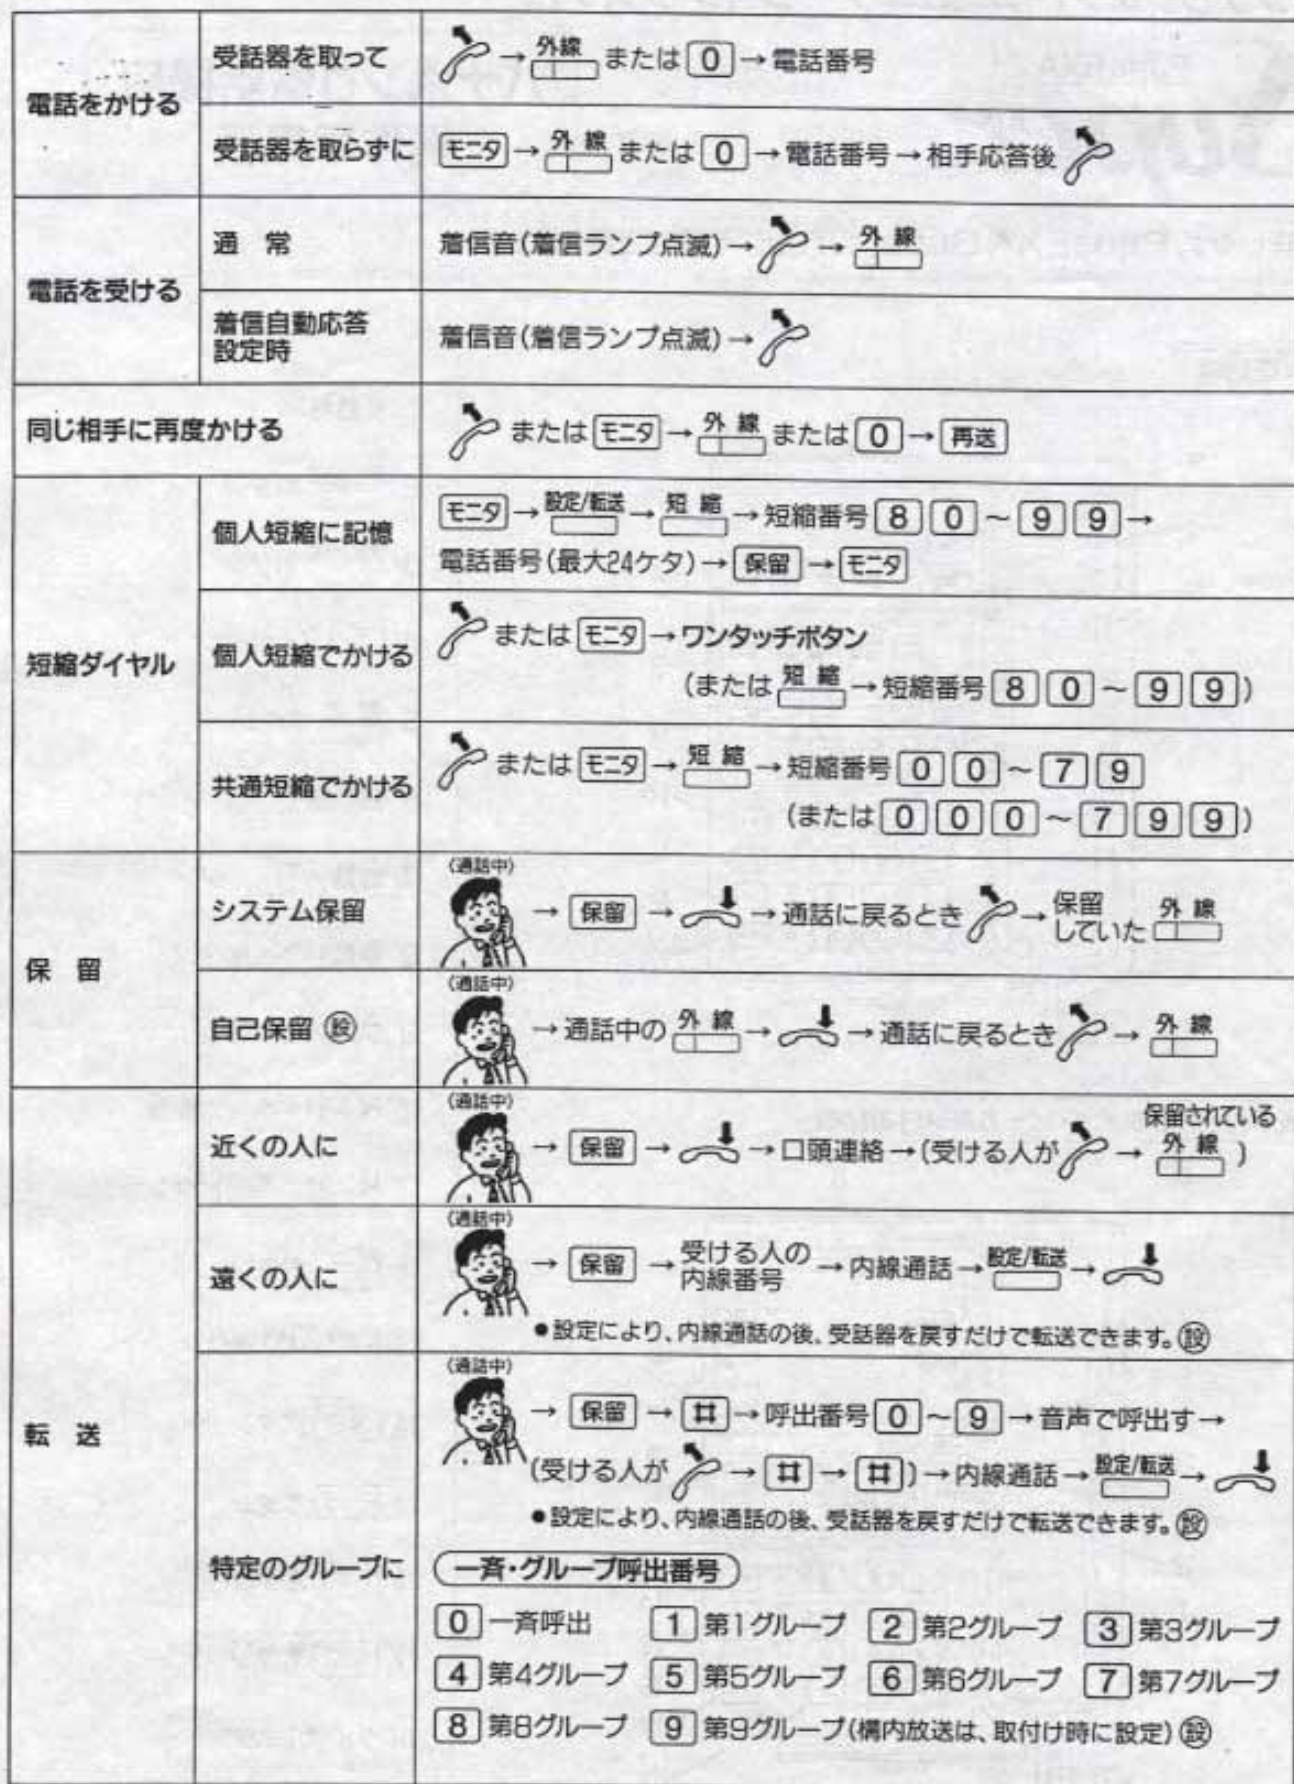 電話をかける
受話器を取って
→ 外線 または 0 → 電話番号
受話器を取らずに
モニタ → 外線 または 0 → 電話番号 → 相手応答後
電話を受ける
通 常
着信音(着信ランプ点滅) → → 外線
着信自動応答
設定時
着信音(着信ランプ点滅) →
同じ相手に再度かける
または モニタ → 外線 または 0 → 再送
短縮ダイヤル
個人短縮に記憶
モニタ → 設定/転送 → 短縮 → 短縮番号 8 0 ～ 9 9 →
電話番号(最大24ケタ) → 保留 → モニタ
個人短縮でかける
または モニタ → ワンタッチボタン
(または 短縮 → 短縮番号 8 0 ～ 9 9)
共通短縮でかける
または モニタ → 短縮 → 短縮番号 0 0 ～ 7 9
(または 0 0 0 ～ 7 9 9)
保 留
システム保留
(通話中)
→ 保留 → → 通話に戻るとき → 保留
していた 外線
自己保留 設
(通話中)
→ 通話中の 外線 → → 通話に戻るとき → 外線
転 送
近くの人に
(通話中)
→ 保留 → → 口頭連絡 → (受ける人が → 保留されている
外線)
遠くの人に
(通話中)
→ 保留 → 受ける人の
内線番号 → 内線通話 → 設定/転送 →
●設定により、内線通話の後、受話器を戻すだけで転送できます。設
特定のグループに
(通話中)
→ 保留 → # → 呼出番号 0 ～ 9 → 音声で呼出す →
(受ける人が → # → #) → 内線通話 → 設定/転送 →
●設定により、内線通話の後、受話器を戻すだけで転送できます。設
一斉・グループ呼出番号
0 一斉呼出 1 第1グループ 2 第2グループ 3 第3グループ
4 第4グループ 5 第5グループ 6 第6グループ 7 第7グループ
8 第8グループ 9 第9グループ(構内放送は、取付け時に設定) 設